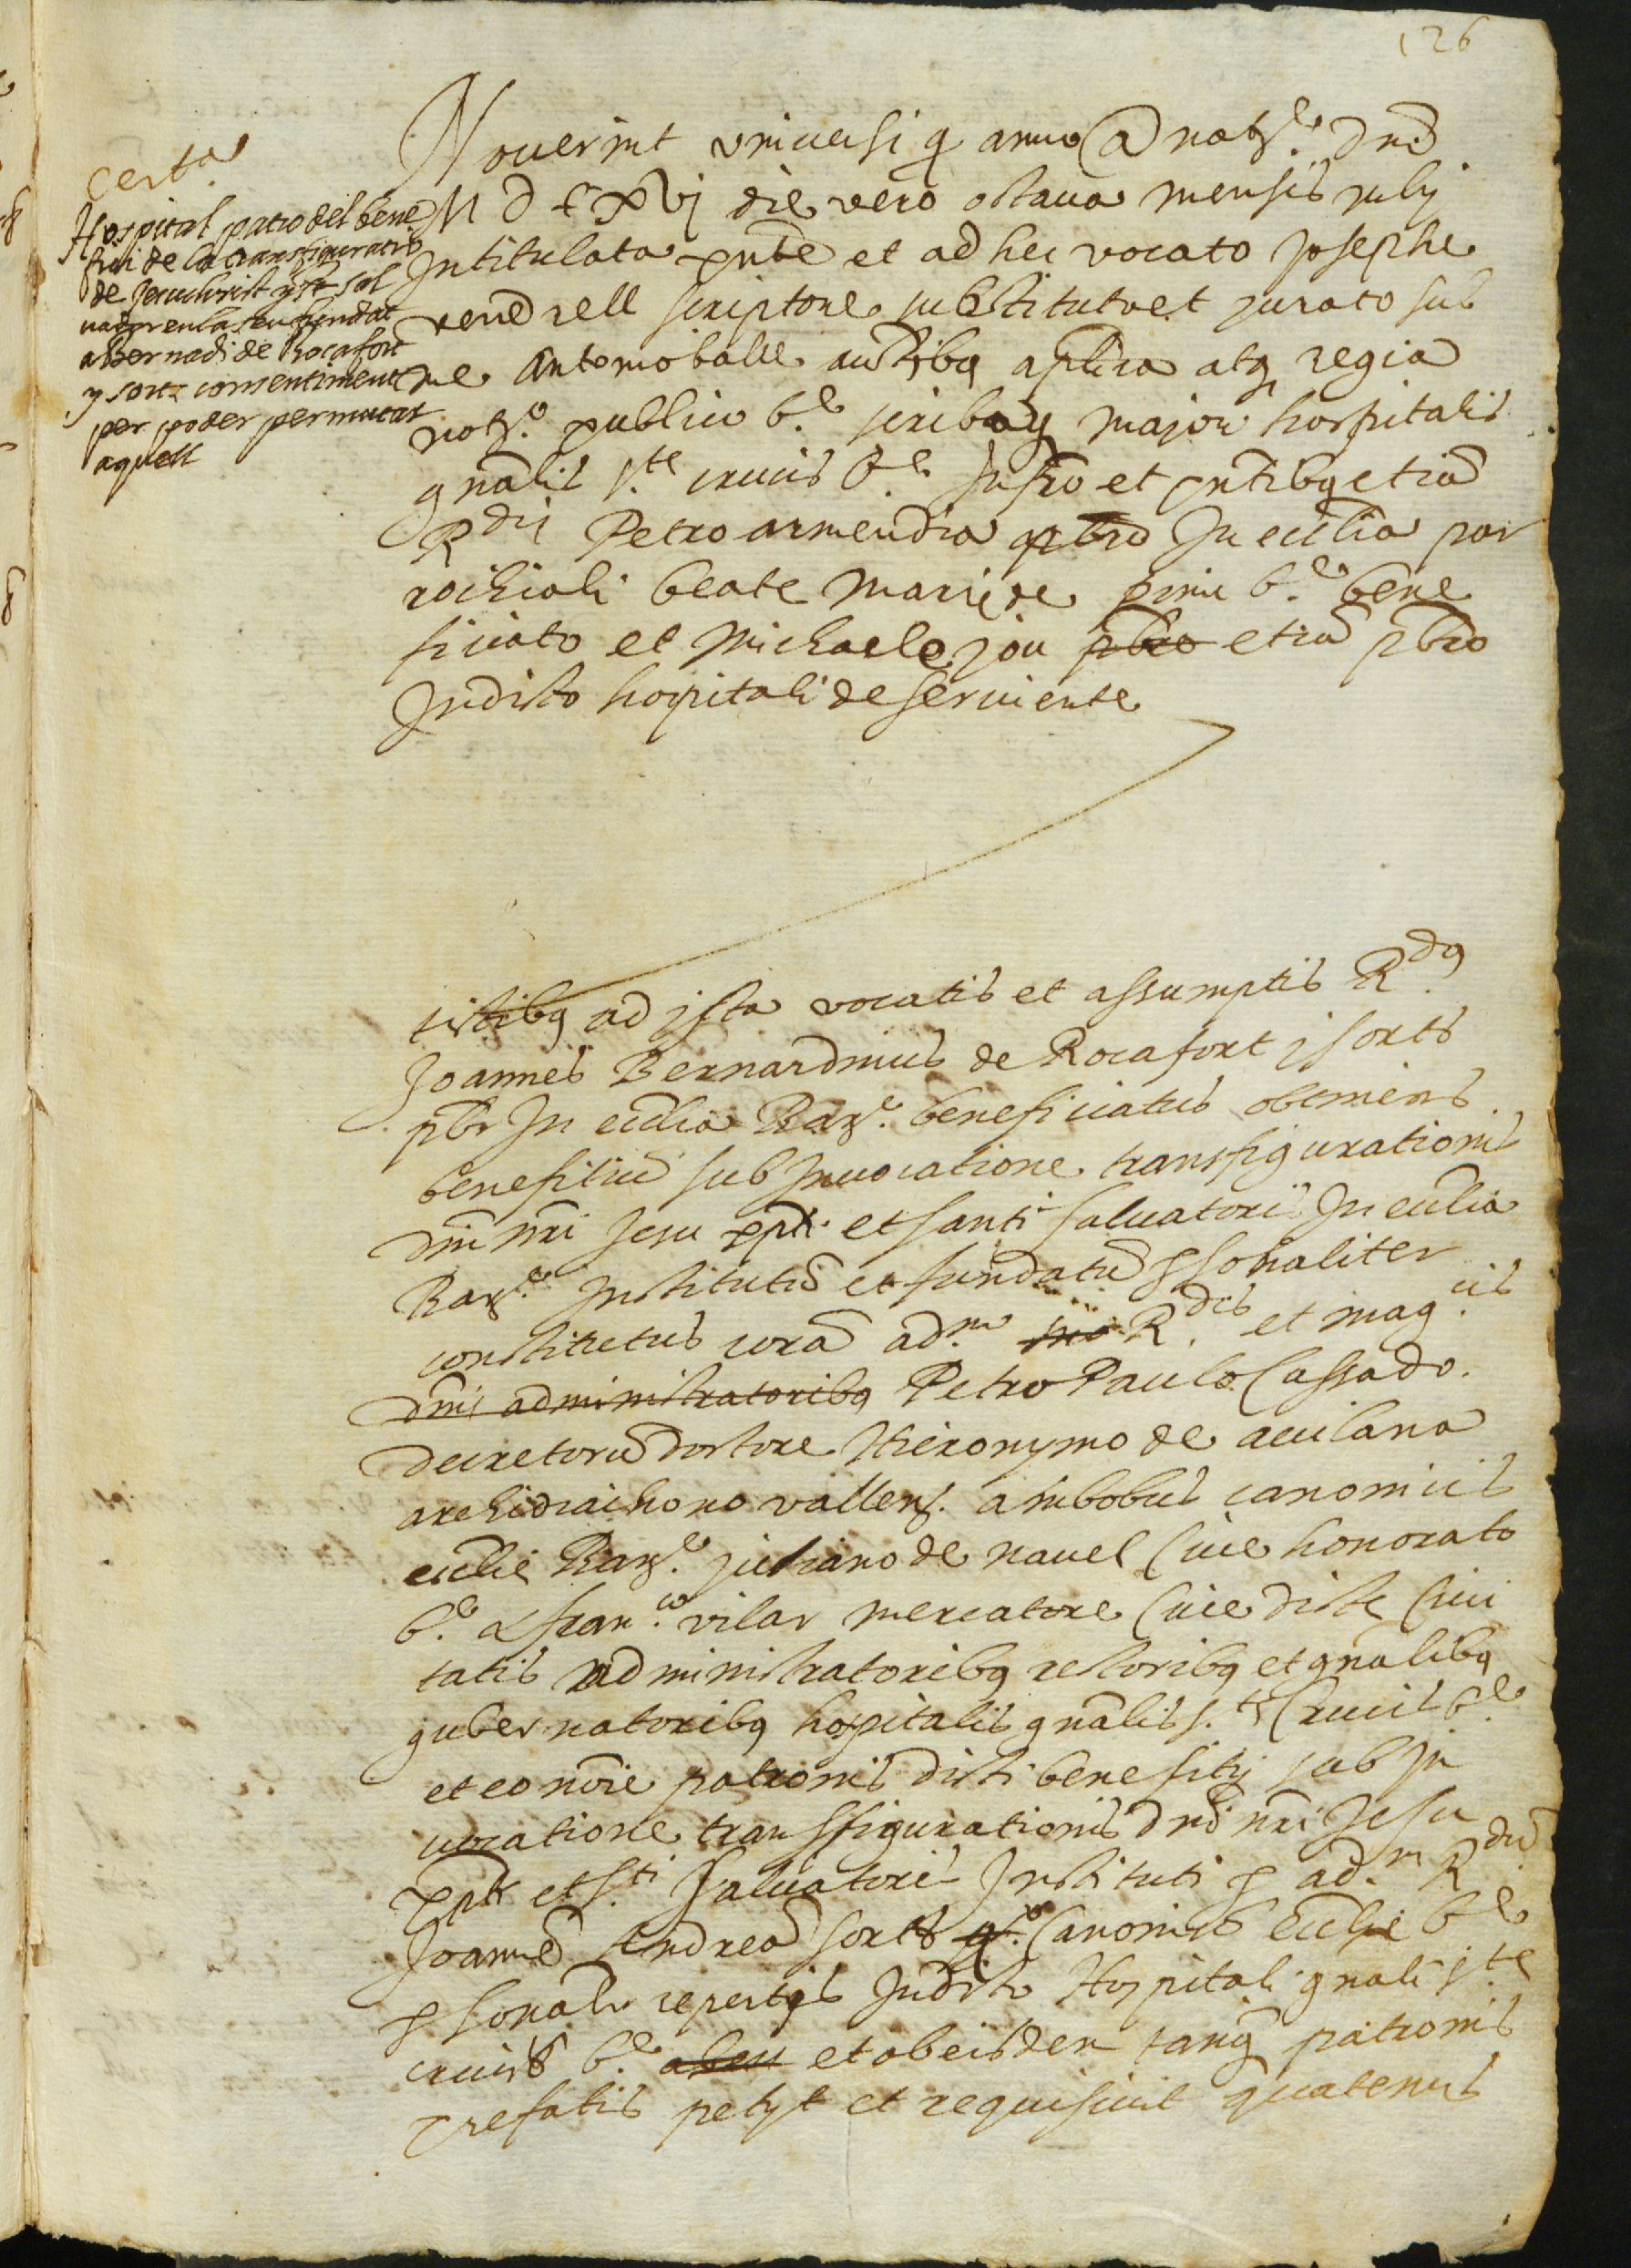 126
Certa
Hospital patro del bene
fici de la transfiguratio
de Jesuchrist y St Sal
uador en la Seu fundat
a Bernadi de Rocafort
y sorts consentiment
per poder permutar
aquell
Nouerint vniuersi q anno a natte. Dnj
M D C xvj die vero octaua mensis july
Intitulata pnte et ad hec vocato Josepho
vendrell scriptore substituto et jurato sub
me Antonio batlle auctibq aplica atq regia
notro. publico be. scribaq major hospitalis
gnalis Ste crucis Be. Infro et pntibq etia
Rdis Petro armendia pbro In ecclia par
rochiali beate Marie de pinu be. bene
ficiato et Michaele jou pbro etia pbro
In dicto hospitali deseruiente
testibq ad ista vocatis et assumptis Rdq.
Joannes Bernardinus de Rocafort y sorts
pbr In ecclia Barne. beneficiatus obtinens
benefitiu sub Inuocatione transfigurationis
dni nri Jesu xpti et santi saluatoris In ecclia
Barne. Institutu et fundatu psonaliter
constitutus cora adm. Rdis. et magcis
dnis administratoribq Petro Paulo Cassador
decretoru doctore Hieronymo de auilana
archidiachono vallens. ambobus canonicis
ecclie Barne. juliano de nauel Ciue honorato
be. & franco. vilar mercatore Ciue dicte Ciui
tatis administratoribq rectoribq et gnalibq
gubernatoribq hospitalis gnalis s.te Crucis be.
et eo noie patronis dicti benefitij sub In
uocatione transfigurationis dnj nri Jesu
xpti et Sti saluatoris Instituti p adm. Rdu.
Joanne Andrea sorts qo. Canonicu ecclie be
psonalr repertis In dicto Hospitali gnali Ste
crucis be. et ab eisdem tanq patronis
prefatis petijt et requisiuit quatenus